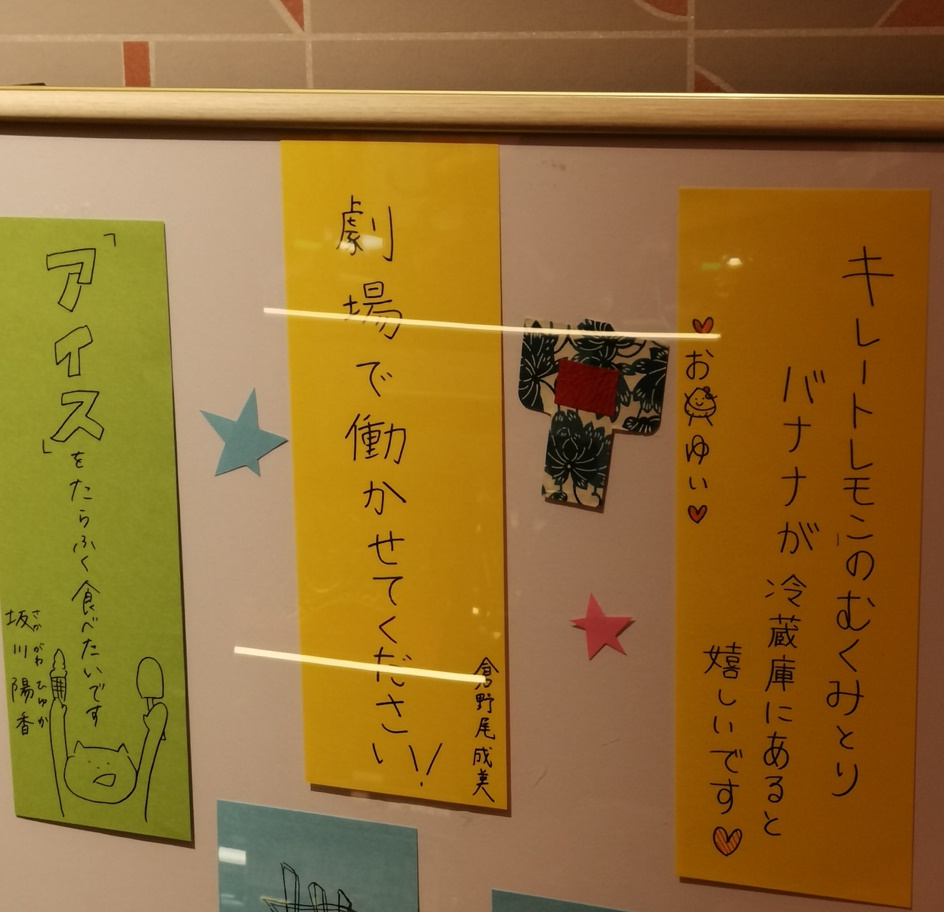 キレートレモンのむくみとり
バナナが冷蔵庫にあると
嬉しいです♡
♡おゆい♡
劇場で働かせてください!!
倉野尾成美
「アイス」をたらふく食べたいです
さかがわひゆか
坂川陽香